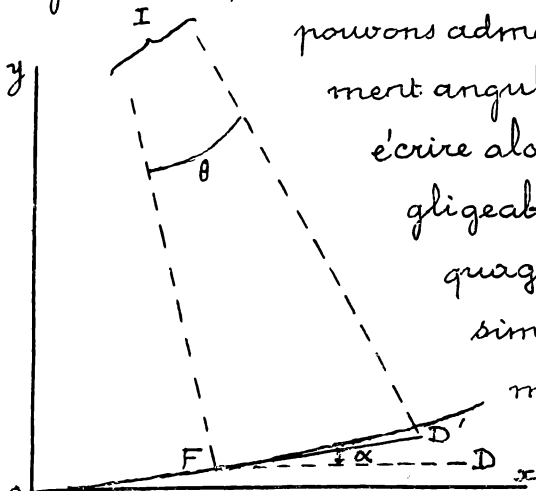 I
pouvons adm
y
ment angul
θ
écrire alo
gligeab
quag
sim
m
F
D'
α
D
x